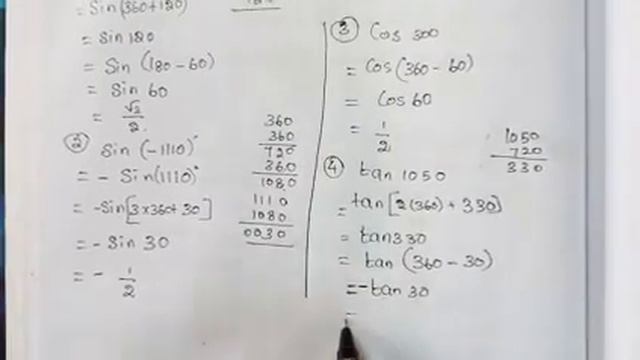 = Sin(360+180)
= Sin 180
= Sin (180 - 60)
= Sin 60
= √3/2
② Sin (-1110)°
= - Sin(1110)°
= -Sin[3×360+30]
= - Sin 30
= - 1/2
360
360
720
360
1080
1110
1080
0030
③ Cos 300
= Cos(360 - 60)
= Cos 60
= 1/2
④ tan 1050
= tan[2(360) + 330]
= tan330
= tan (360 - 30)
= -tan 30
=
1050
720
330